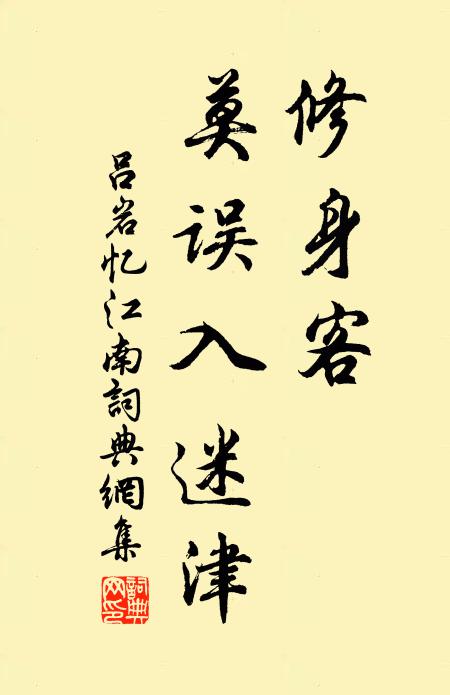 修身客
莫误入迷津
吕岩忆江南詞典網集
詞典網印